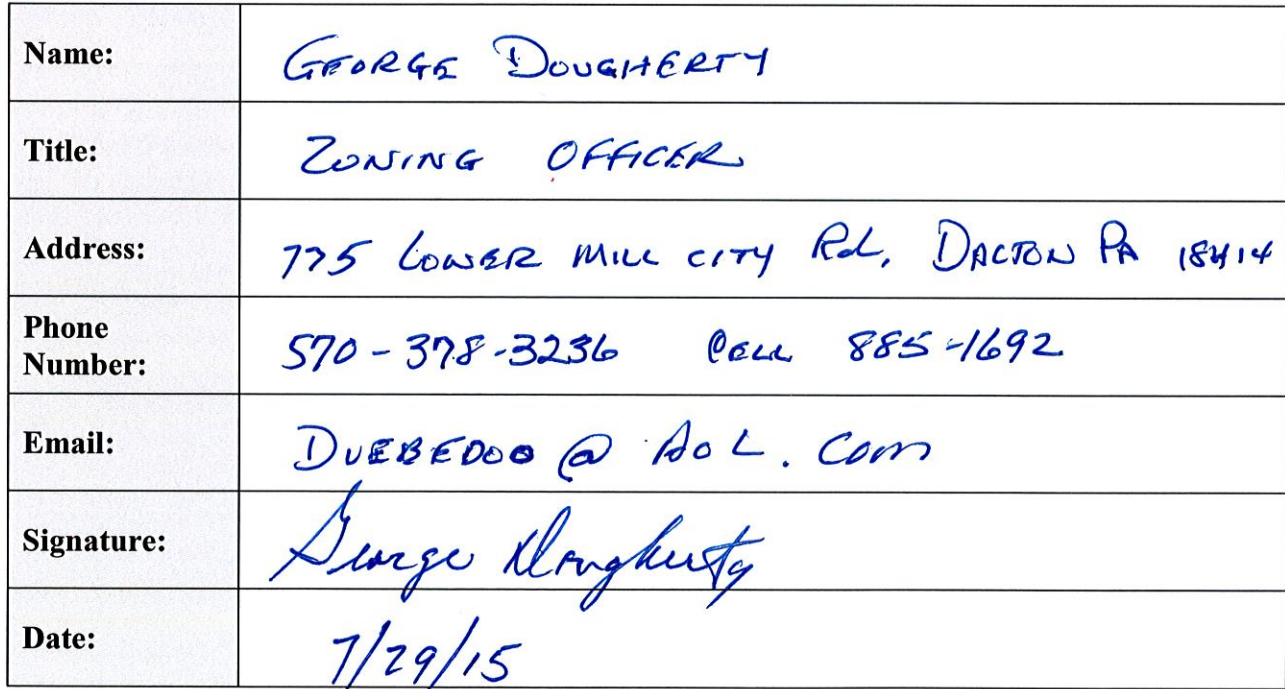 Name: GEORGE DOUGHERTY
Title: ZONING OFFICER
Address: 775 LOWER MILL CITY Rd, DALTON PA 18414
Phone
Number: 570-378-3236 CELL 885-1692
Email: DUEBEDOO @ AOL. Com
Signature: George Dougherty
Date: 7/29/15